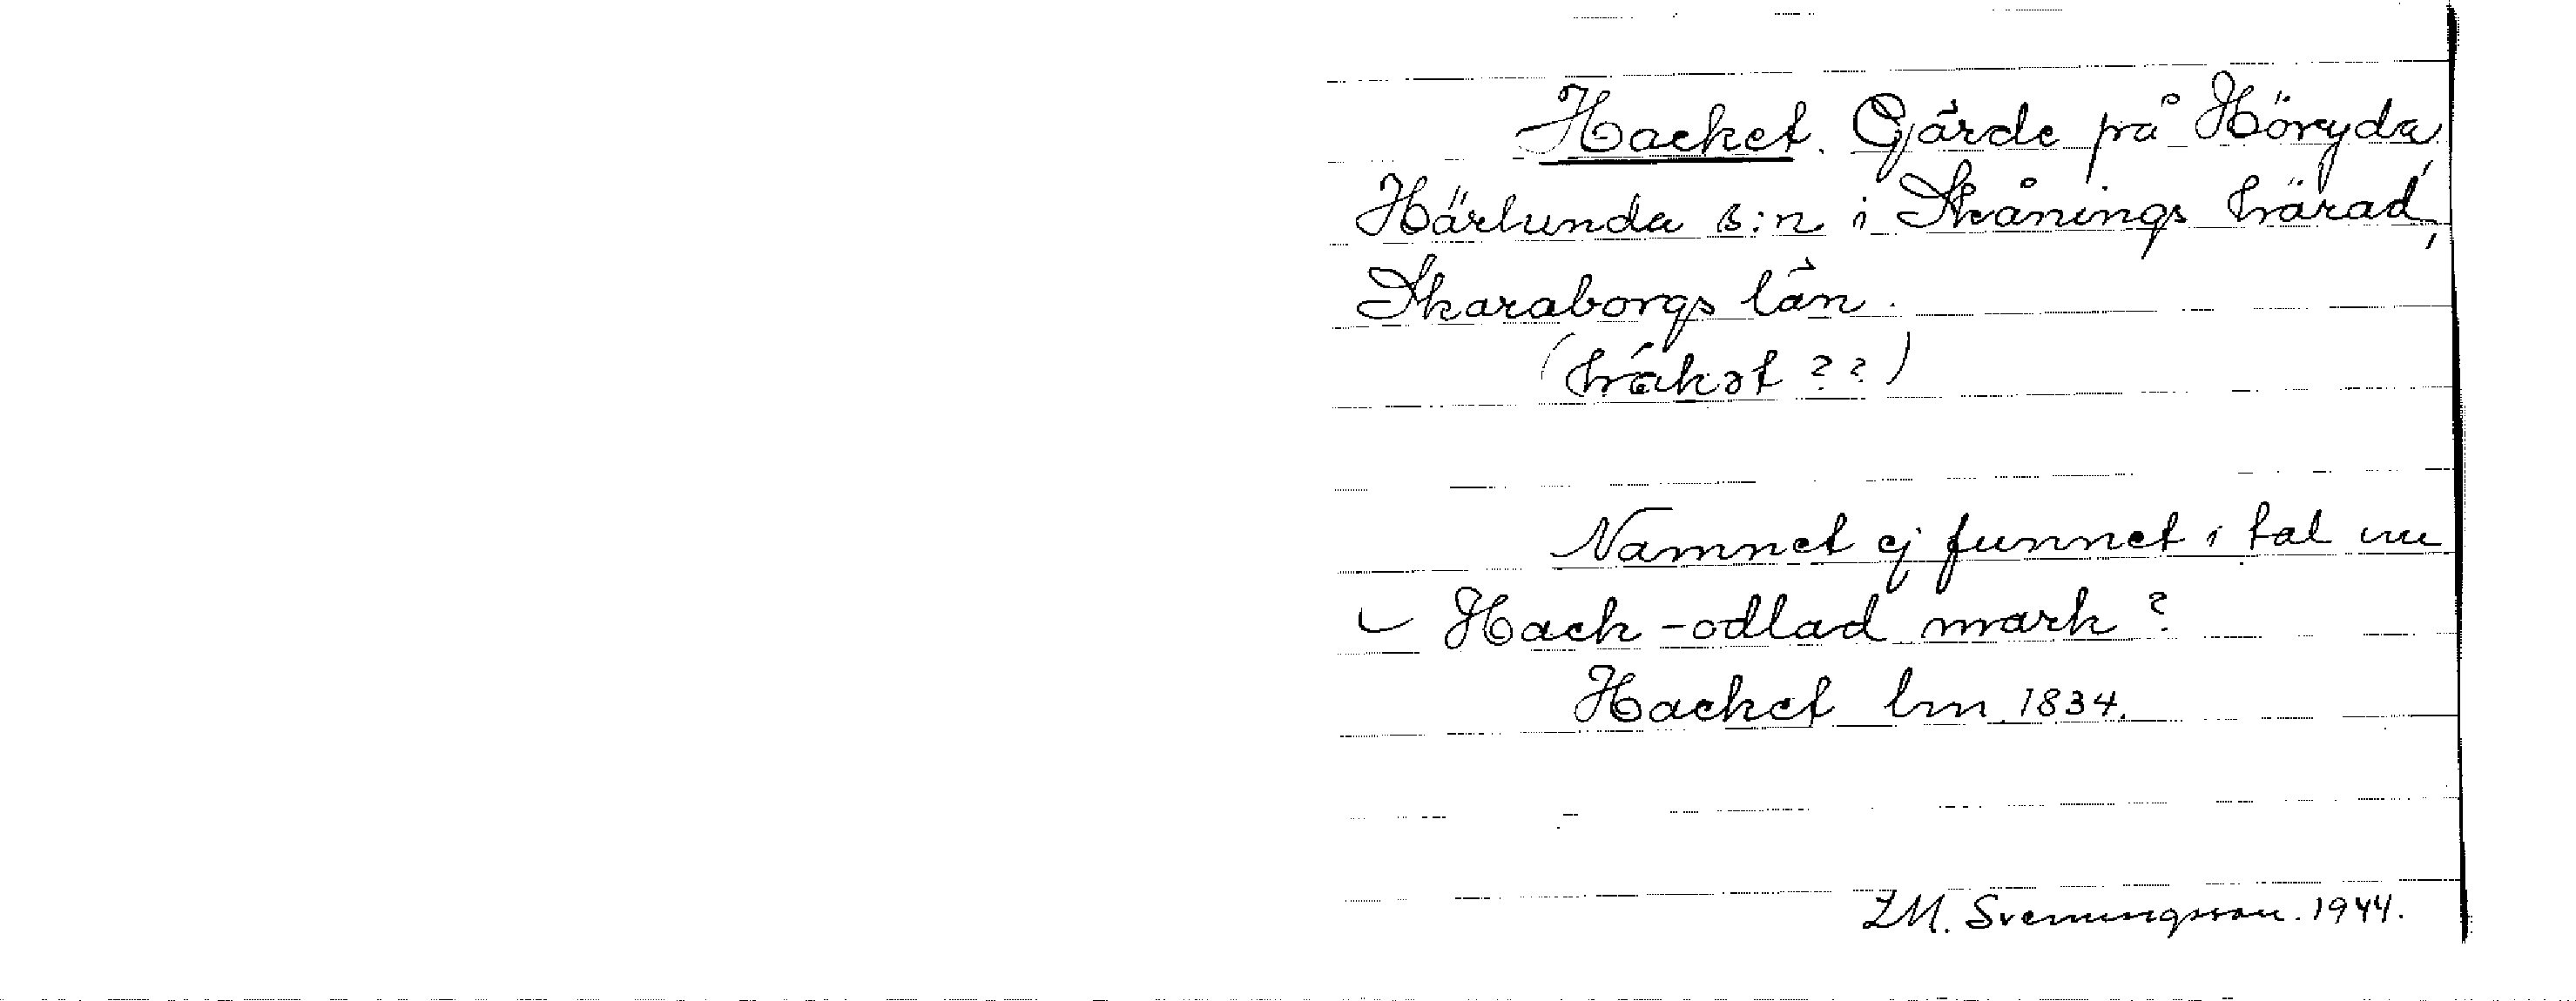 Hacket. Gärde på Höryda,
Härlunda s:n i Skånings härad,
Skaraborgs län.
(hákət ??)
Namnet ej funnet i tal nu
Hack-odlad mark?
Hacket lm 1834.
I.M. Svenningsson. 1944.